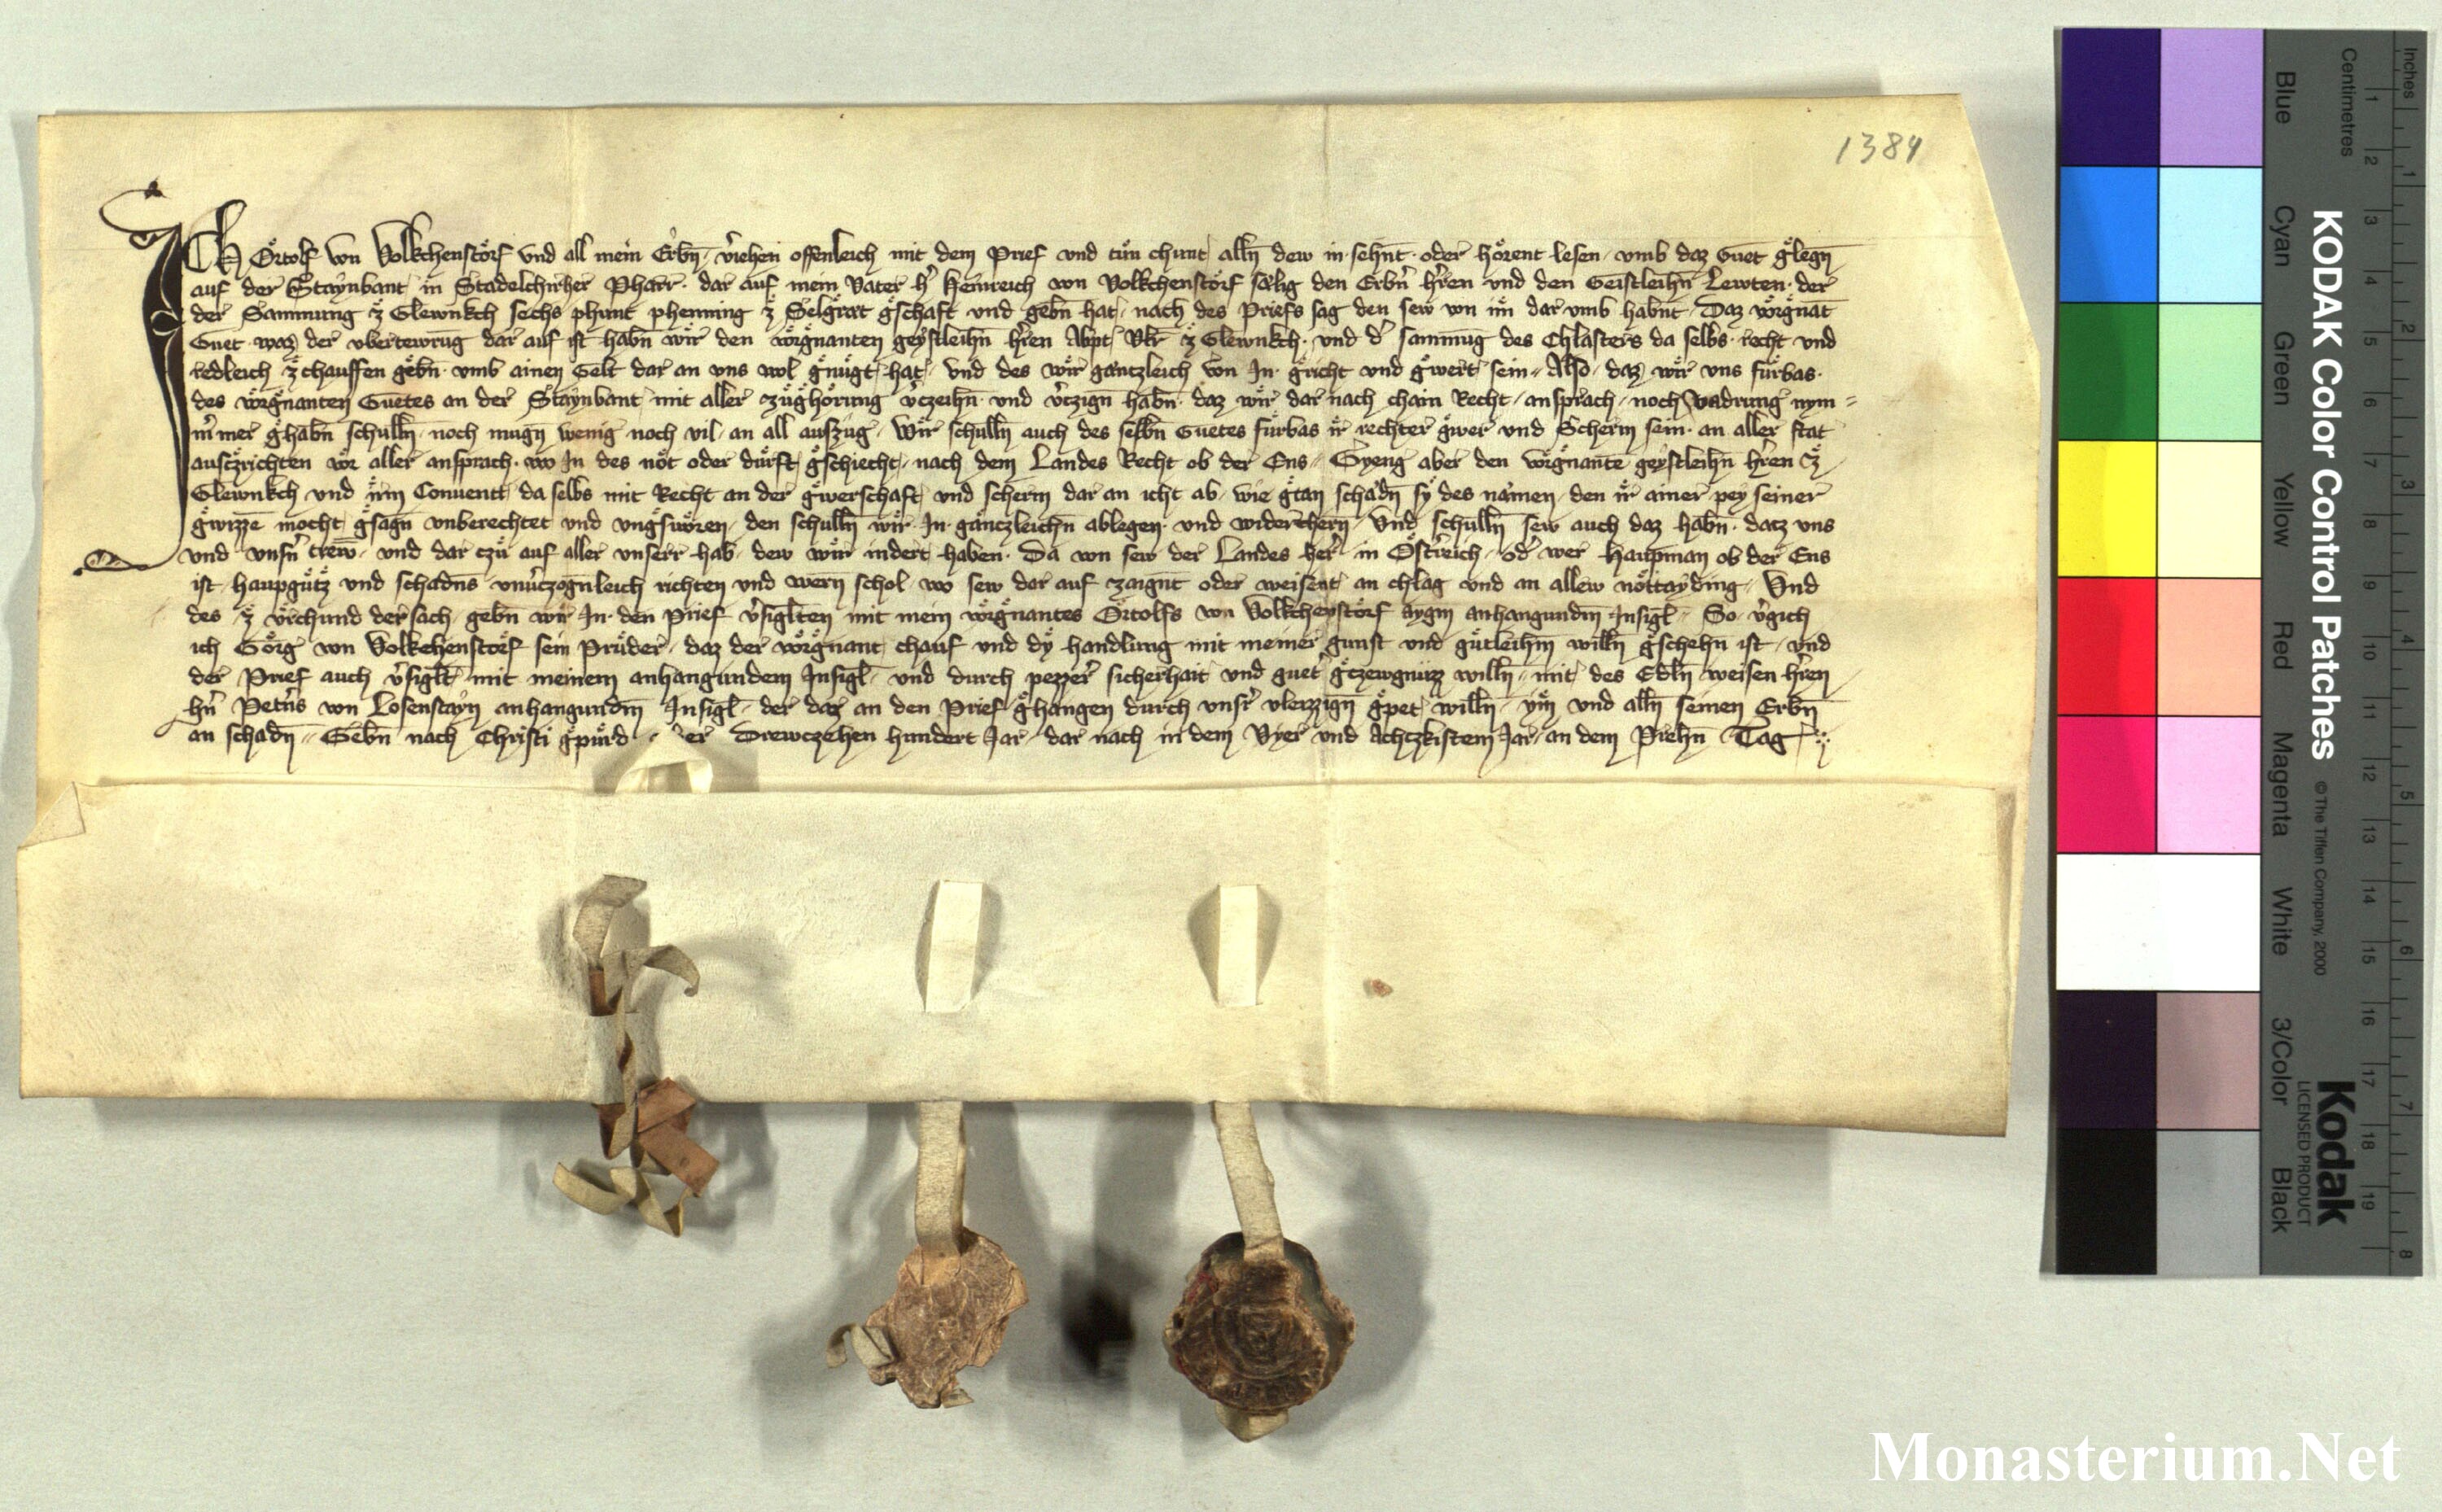 1384
ICH Ortolf von Volkchenstorf und all mein Erbn verihen offenleich mit dem Prief und tun chunt alln dew in sehnt oder horent lesen umb daz Guet glegn
auf der Staynbant in Stadelchircher Pharr dar auf mein Vater her Heinreich von Volkchenstorf sælig den Erbern herren und den Geistleihn Lewten der
der Sammung ze Glewnkch sechs phunt phenning ze Selgræt gschaft und gebn hat nach des Priefs sag den sew von im dar umb habnt Daz vorgnant
Guet waz der ubertewrung dar auf ist habn wir den vorgnanten geystleihn herren Abpt ze Glewnkch und der sammung des Chlasters da selbs recht und
redleich ze chauffen gebn umb ainen Gelt dar an uns wol gnugt hat und des wir gantzleich von In gricht und gwert sein Also daz wir uns furbas
des vorgnanten Guetes an der Staynbant mit aller zughorung verczeihn und verczign habn daz wir dar nach chain Recht ansprach noch vadrung nym=
mer mer ghabn schulln noch mugn wenig noch vil an all auszug Wir schulln auch des selbn Guetes furbas ir rechter gwer und Scherm sein an aller stat
auszrichten vor aller ansprach wo In des not oder durft gschiecht nach dem Landes Recht ob der Ens Gyeng aber den vorgnanten geystleihn herren ze
Glewnkch und irm Convent da selbs mit Recht an der gwerschaft und scherm dar an icht ab wie gtan schadn sy des næmen den ir ainer pey seiner
gwizze mocht gsagn unberechtet und ungsworen den schulln wir In gantzleichn ablegen und widerchern Und schulln sew auch daz habn datz uns
und unsern trewn und dar czu auf aller unserr hab dew wir indert haben Da von sew der Landes herr in Osterreich oder wer Haupman ob der Ens
ist haupgutz und schadns unverczognleich richten und wern schol wo sew dar auf zaignt oder weisent an chlag und an allew nottayding Und
des ze urchund der sach gebn wir In den Prief versiglten mit mein vorgnantes Ortolfs von Volkchenstorf aygm anhangundm Insigl So vergich
ich Gorg von Volkchenstorf sein Pruder daz der vorgnant chauf und dy handlung mit meiner gunst und gutleihm willn gschehn ist und
der Prief auch versiglt mit meinem anhangundem Insigl und durch pezzer sicherhait und guet gtzewgnuzz willn mit des Edln weisen herren
hern Peters von Losenstayn anhangundm Insigl der daz an den Prief ghangen durch unsr vleizzign gpet willn ym und alln seinen Erbn
an schadn Gebn nach Christi gpurd er Drewczehen hundert Jar dar nach in dem Vyer und Achtzkistem Jar an dem Tag
Inches
Centimetres
Blue Cyan Green Yellow Red Magenta White 3/Color Black
KODAK Color Control Patches © The Tiffen Company, 2000
Kodak
LICENSED PRODUCT
1 2 3 4 5 6 7 8 9 10 11 12 13 14 15 16 17 18 19
1 2 3 4 5 6 7 8
Monasterium.Net